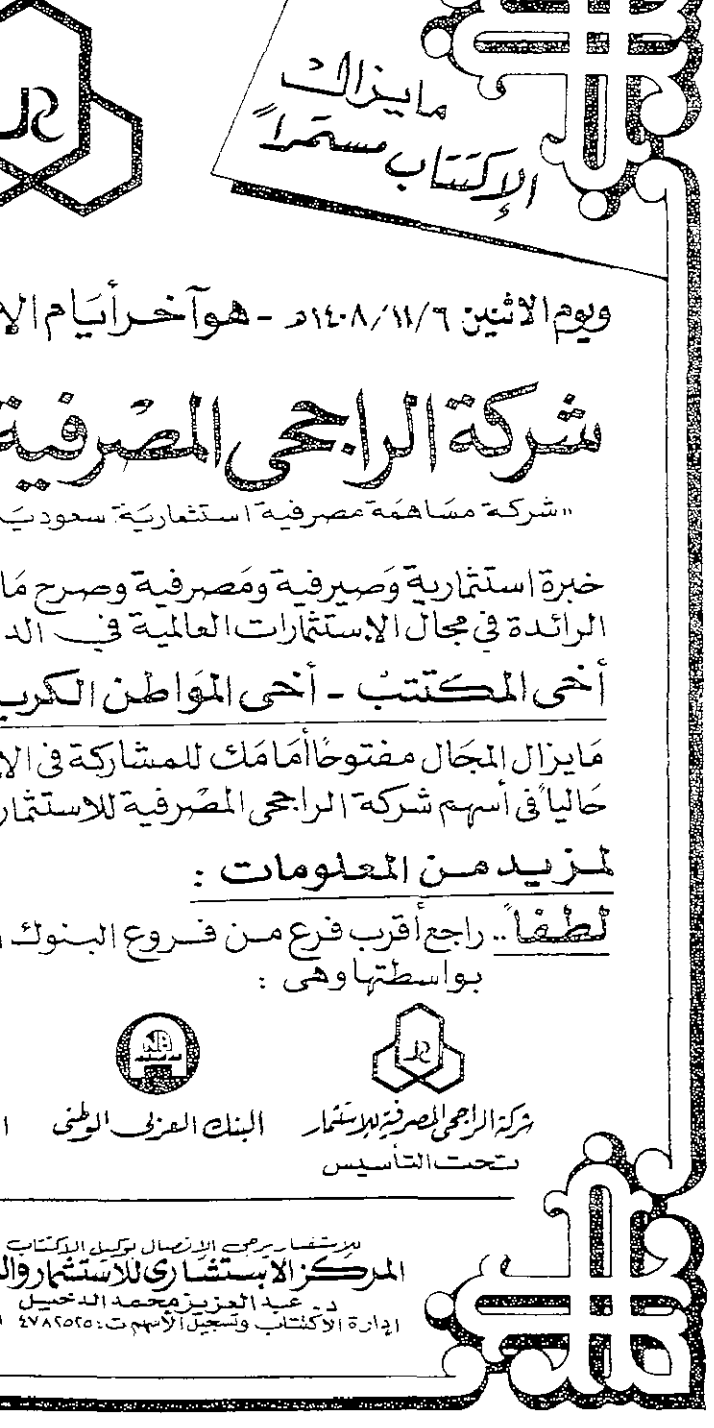 مايزال
الإكتتاب مستمراً
ويوم الاثنين ١٤٠٨/١١/٦هـ - هو آخر أيام الإ
شركة الراجحى المصرفية
"شركة مساهمة مصرفية استثمارية سعودية
خبرة استثمارية وصيرفية ومصرفية وصرح ما
الرائدة في مجال الإستثمارات العالمية في الد
أخى المكتتب - أخى المواطن الكريـ
مايزال المجال مفتوحاً أمامك للمشاركة فى الإ
حالياً فى أسهم شركة الراجحى المصرفية للاستثمار
لمزيد من المعلومات :
لطفاً .. راجع أقرب فرع من فروع البنوك
بواسطتها وهى :
شركة الراجحى المصرفية للإستثمار
تحت التأسيس
البنك العربى الوطنى
للإستفسار يرجى الإتصال بوكيل الاكتتاب
المركز الإستشارى للاستثمار وال
د. عبد العزيز محمد الدخيل
إدارة الاكتتاب وتسجيل الأسهم ت : ٤٧٨٢٥٢٥